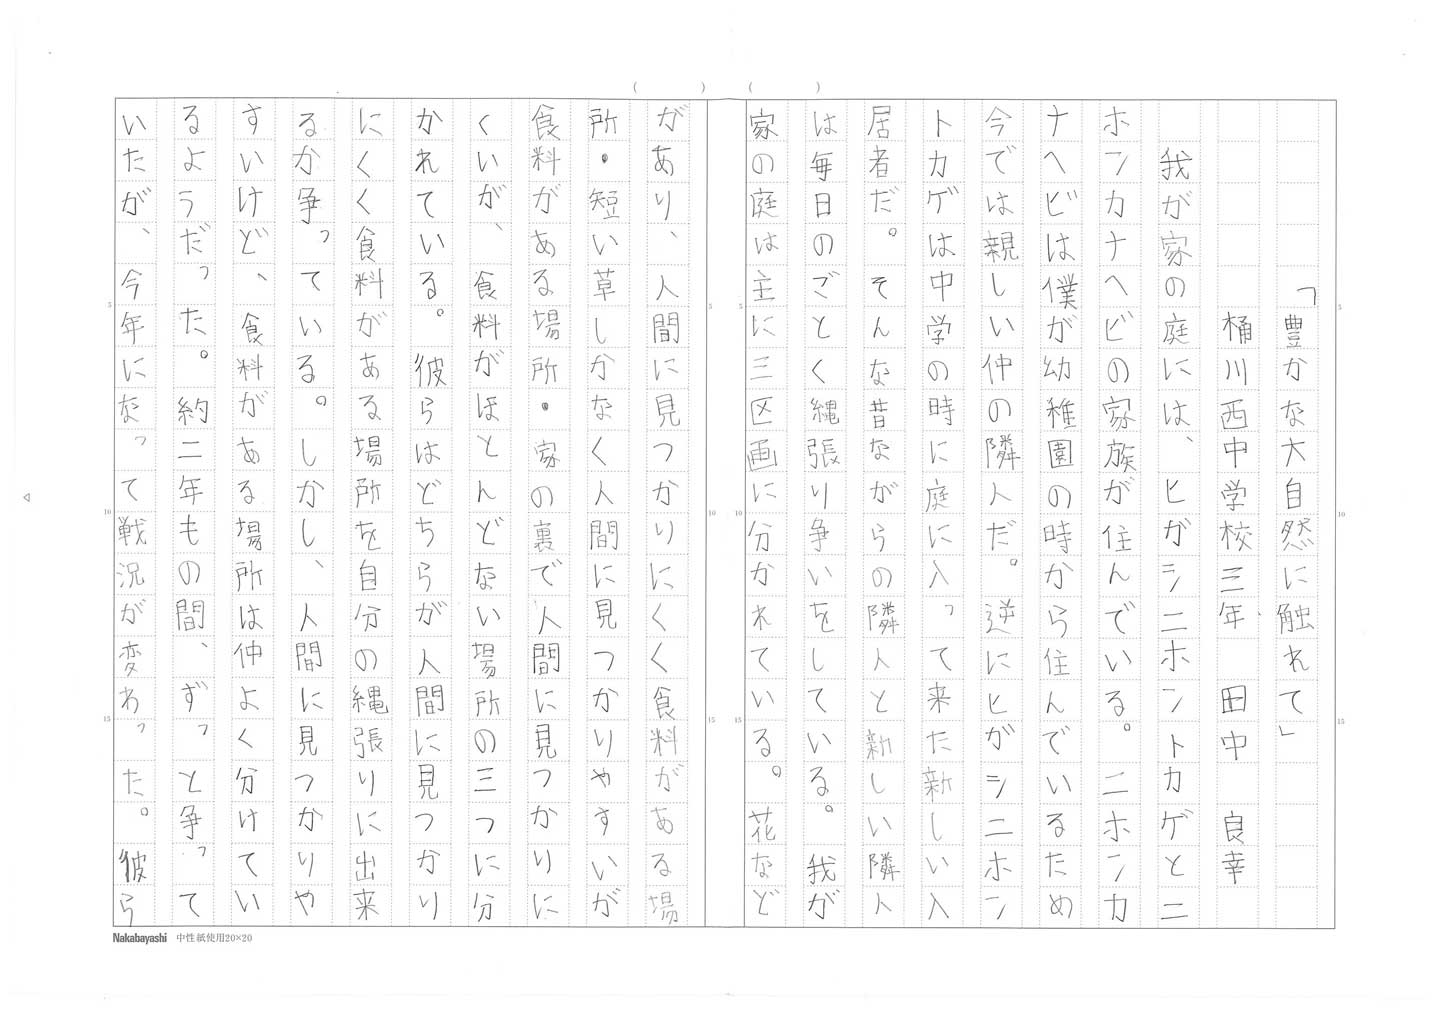 「豊かな大自然に触れて」
桶川西中学校三年　田中　良幸
我が家の庭には、ヒガシニホントカゲとニ
ホンカナヘビの家族が住んでいる。ニホンカ
ナヘビは僕が幼稚園の時から住んでいるため
今では親しい仲の隣人だ。逆にヒガシニホン
トカゲは中学の時に庭に入って来た新しい入
居者だ。そんな昔ながらの隣人と新しい隣人
は毎日のごとく縄張り争いをしている。我が
家の庭は主に三区画に分かれている。花など
があり、人間に見つかりにくく食料がある場
所・短い草しかなく人間に見つかりやすいが
食料がある場所・家の裏で人間に見つかりに
くいが、食料がほとんどない場所の三つに分
かれている。彼らはどちらが人間に見つかり
にくく食料がある場所を自分の縄張りに出来
るか争っている。しかし、人間に見つかりや
すいけど、食料がある場所は仲よく分けてい
るようだった。約二年もの間、ずっと争って
いたが、今年になって戦況が変わった。彼ら
Nakabayashi 中性紙使用20×20